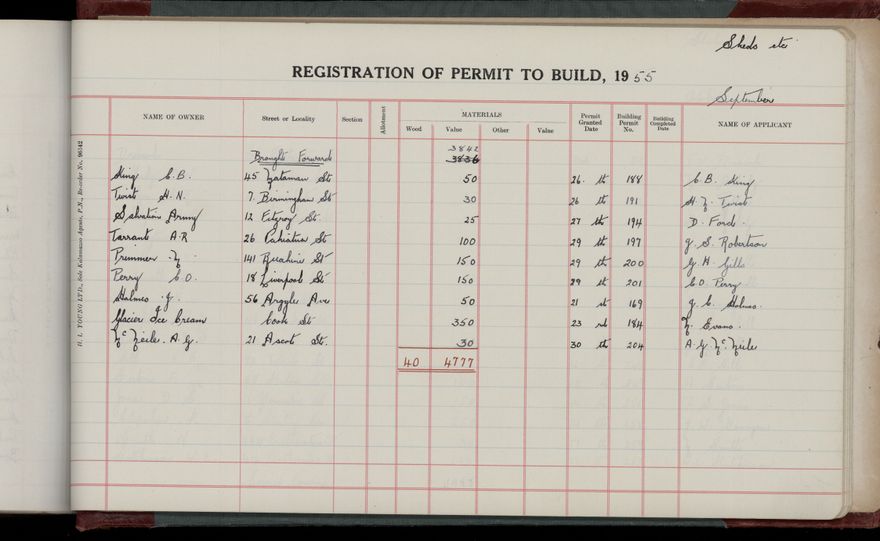 Sheds etc
REGISTRATION OF PERMIT TO BUILD, 1955
September
NAME OF OWNER Street or Locality Section Allotment MATERIALS Wood Value Other Value Permit Granted Date Building Permit No. Building Completed Date NAME OF APPLICANT
3842
Brought Forward 3836
King C.B. 45 Mataman St 50 26 th 188 C.B. King
Twist H.N. 7 Birmingham St 30 26 th 191 H.N. Twist
Salvation Army 12 Fitzroy St. 25 27 th 194 D. Ford
Tarrant A.R 26 Pahiatua St 100 29 th 197 J.S. Robertson
141 Ruahine St 150 29 th 200 G.H. Gills
Perry C.O. 18 Liverpool St 150 29 th 201 C.O. Perry
Holmes J. 56 Argyle Ave 50 21 st 169 J.C. Holmes.
Glacier Ice Cream Cook St 350 23 rd 184 Evans.
McNeile. A.G. 21 Ascot St. 30 30 th 204 A G McNeile
40 4777
H. L. YOUNG LTD., Sole Kalamazoo Agents, P.N., Re-order No. 96542